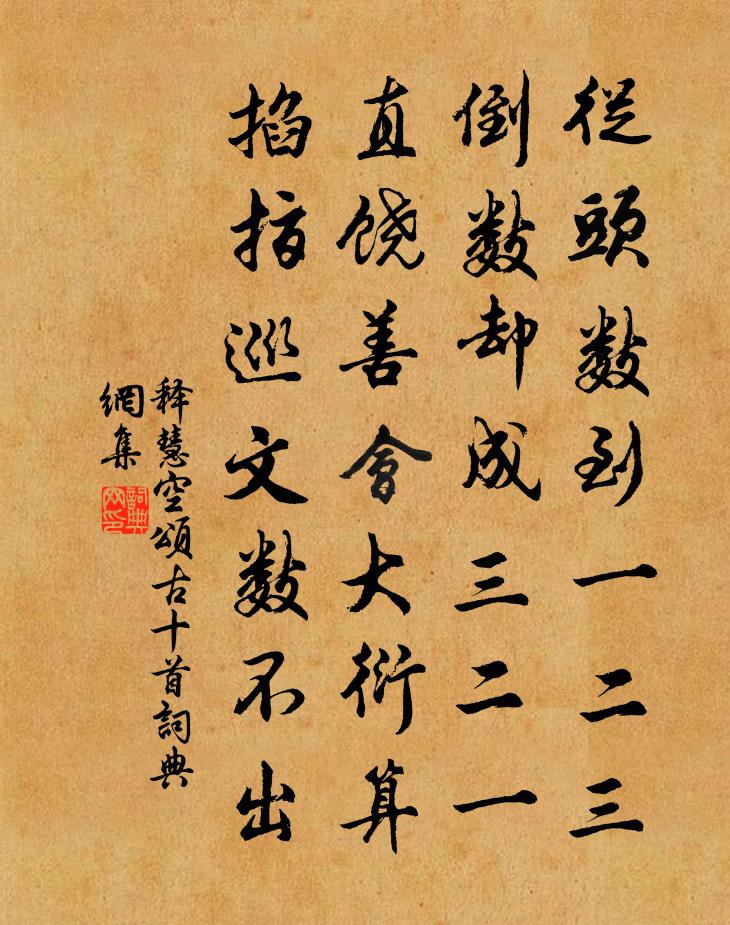 從頭数到一二三
倒数却成三二一
直饒善會大衍算
掐指巡文数不出
释慧空頌古十首詞典
網集
詞典網印